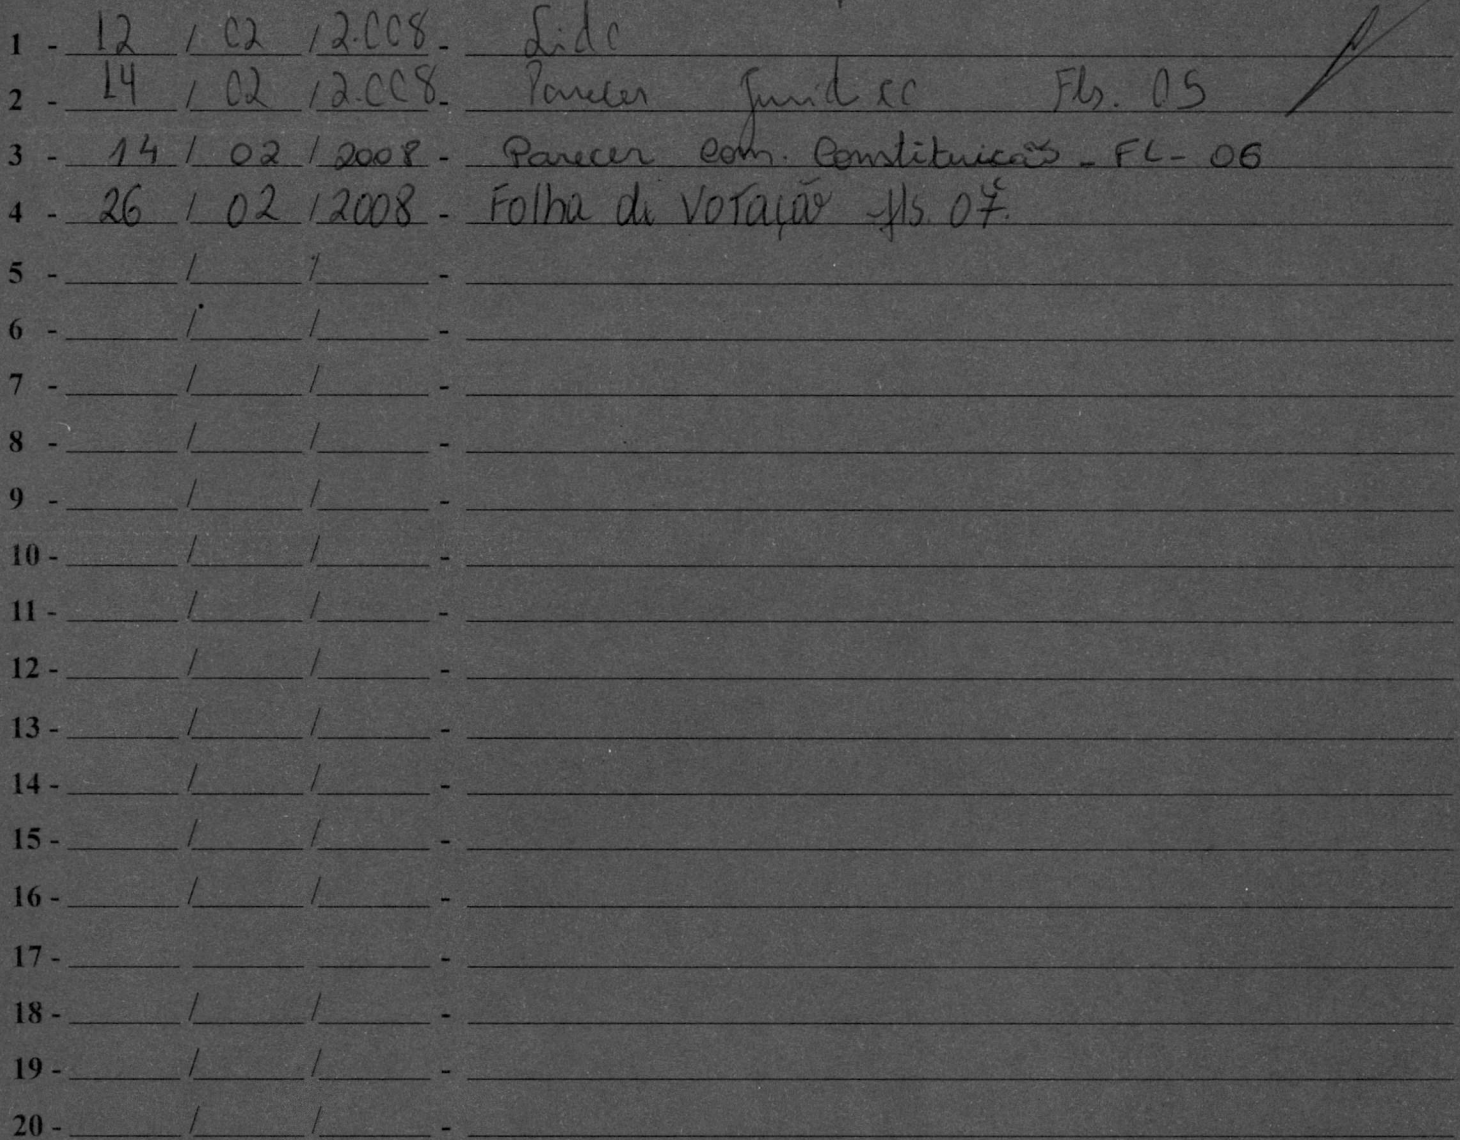 1 - 12 / 02 / 2.008 - Lido
2 - 14 / 02 / 2.008 - Parecer Jurídico Fls. 05
3 - 14 / 02 / 2008 - Parecer Com. Constituição - FL - 06
4 - 26 / 02 / 2008 - Folha de Votação fls. 07.
5 - / / -
6 - / / -
7 - / / -
8 - / / -
9 - / / -
10 - / / -
11 - / / -
12 - / / -
13 - / / -
14 - / / -
15 - / / -
16 - / / -
17 - -
18 - / / -
19 - / / -
20 - / / -